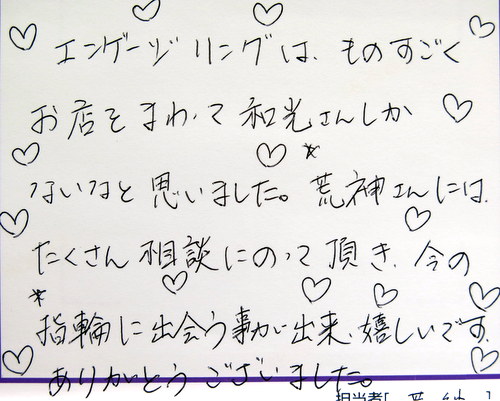 エンゲージリングは、ものすごく
お店をまわって和光さんしか
ないなと思いました。荒神さんには、
たくさん相談にのって頂き、今の
指輪に出会う事が出来、嬉しいです。
ありがとうございました。
担当者[